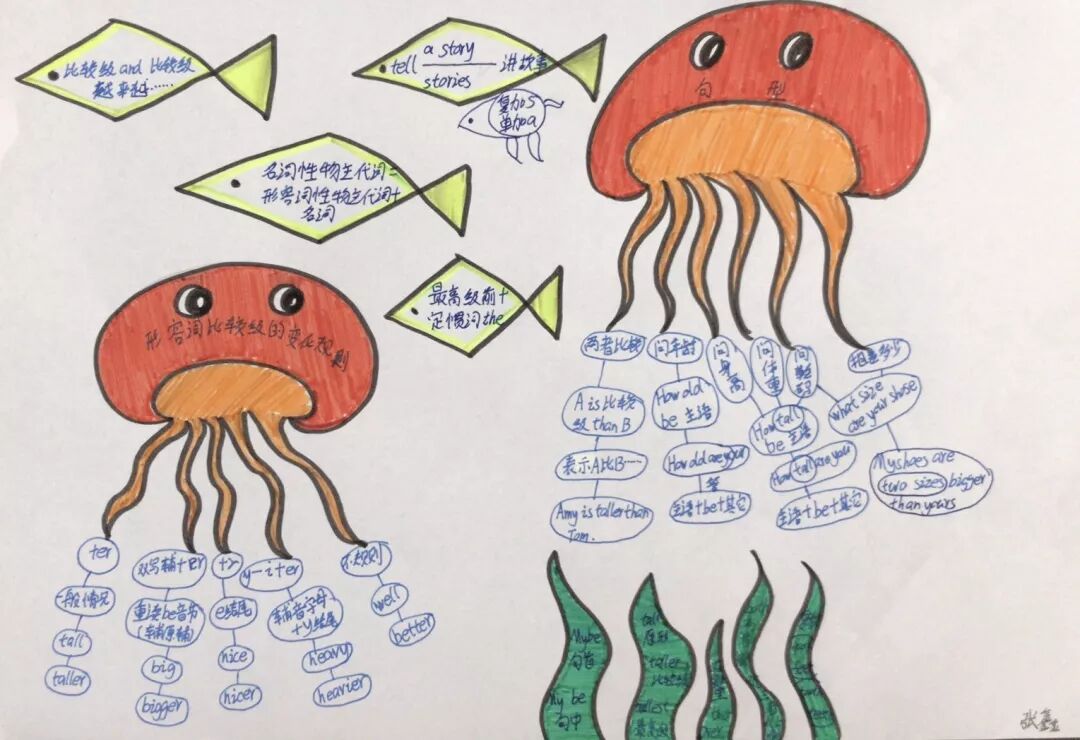 比较级 and 比较级
越来越……
tell a story
stories
讲故事
复加s
单加a
名词性物主代词=
形容词性物主代词+
名词
最高级前+
定惯词the
句型
两者比较
A is 比较
级 than B
表示A比B……
Amy is taller than
Tom.
问年龄
How old
be 主语
How old are you
答
主语+be+其它
问身高
问体重
问鞋码
How tall
be 主语
How tall are you
主语+be+其它
相差多少
what size
are your shose
My shoes are
two sizes bigger
than yours
形容词比较级的变化规则
+er
一般情况
tall
taller
双写辅+er
重读be音节
(辅原辅)
big
bigger
+r
e结尾
nice
nicer
y-i+er
辅音字母
+y结尾
heavy
heavier
不规则
well
better
My be
句首
My be
句中
tall
原型
taller
比较级
tallest
最高级
over
张鑫